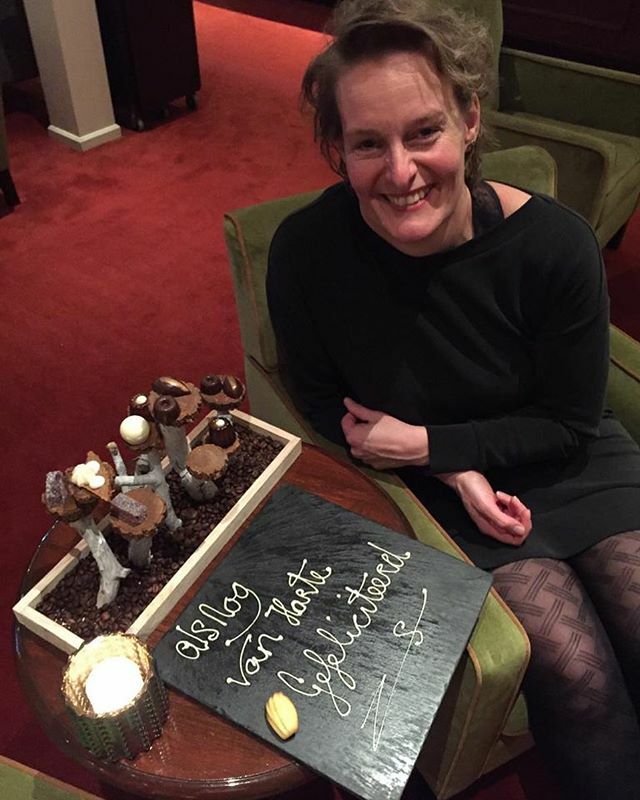 alsnog
van Harte
Gefeliciteerd